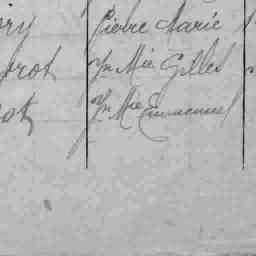 ory Pierre Marie
prot Yn Mie Gilles
ot Yn Mie Emmanuel